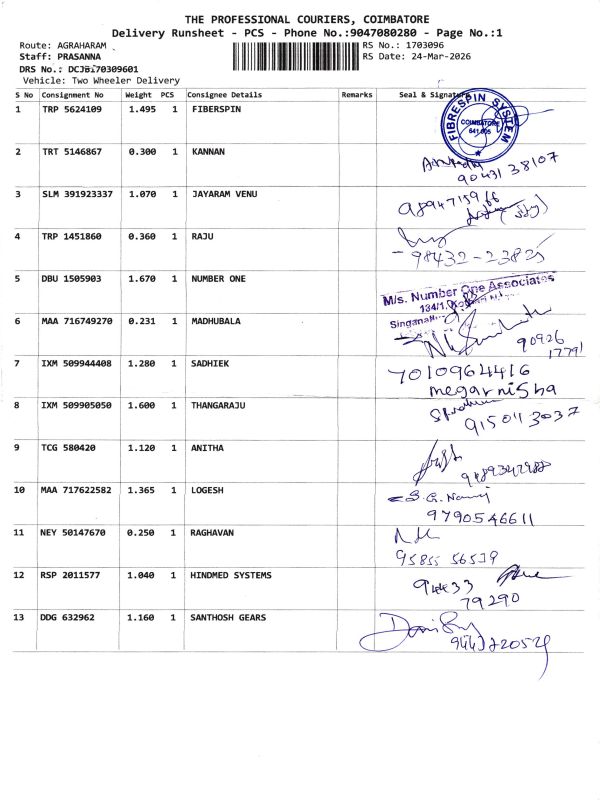 THE PROFESSIONAL COURIERS, COIMBATORE
Delivery Runsheet - PCS - Phone No.:9047080280 - Page No.:1
Route: AGRAHARAM RS No.: 1703096
Staff: PRASANNA RS Date: 24-Mar-2026
DRS No.: DCJBi70309601
Vehicle: Two Wheeler Delivery
S No Consignment No Weight PCS Consignee Details Remarks Seal & Signature
1 TRP 5624109 1.495 1 FIBERSPIN
FIBRESPIN SYSTEM
COIMBATORE
641 005
2 TRT 5146867 0.300 1 KANNAN
90431 38107
3 SLM 391923337 1.070 1 JAYARAM VENU
9894715966
4 TRP 1451860 0.360 1 RAJU
98432-23825
5 DBU 1505903 1.670 1 NUMBER ONE
M/s. Number One Associates
134/1,
6 MAA 716749270 0.231 1 MADHUBALA
90926
17791
7 IXM 509944408 1.280 1 SADHIEK
7010964416
megarnisha
8 IXM 509905050 1.600 1 THANGARAJU
9150113037
9 TCG 580420 1.120 1 ANITHA
9489342988
10 MAA 717622582 1.365 1 LOGESH
9790546611
11 NEY 50147670 0.250 1 RAGHAVAN
95855 56539
12 RSP 2011577 1.040 1 HINDMED SYSTEMS
94433
79290
13 DDG 632962 1.160 1 SANTHOSH GEARS